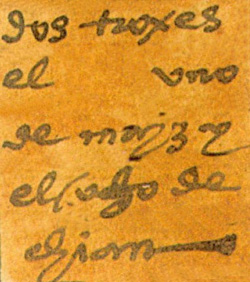 dos troxes
el uno
de maiz y
el otro de
chian